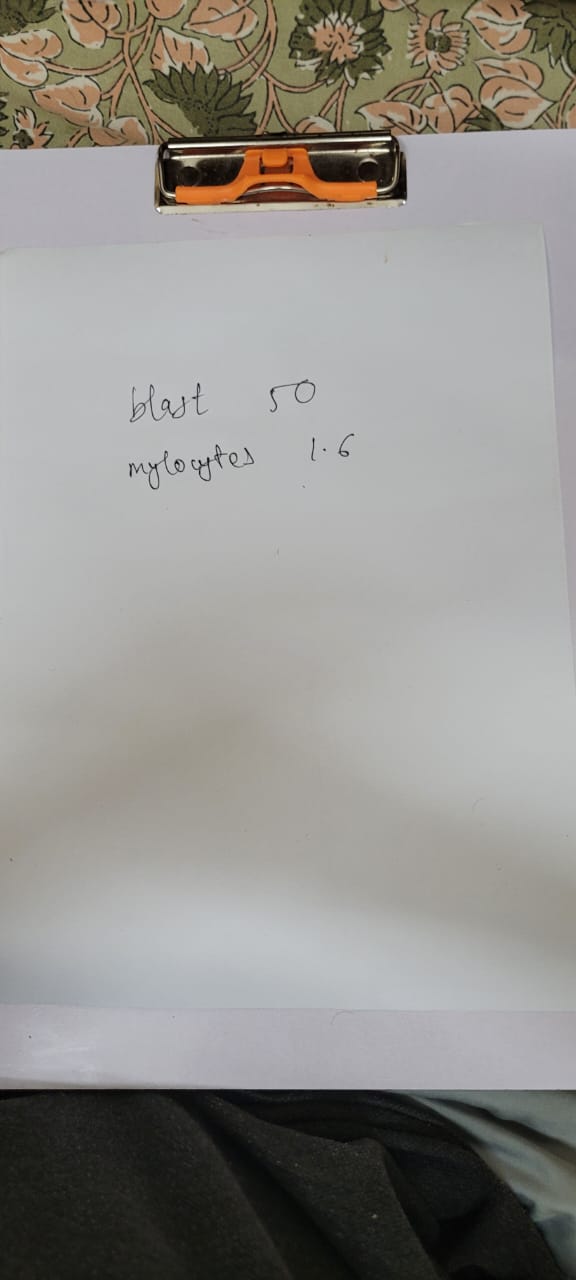 blast 50
mylocytes 1.6